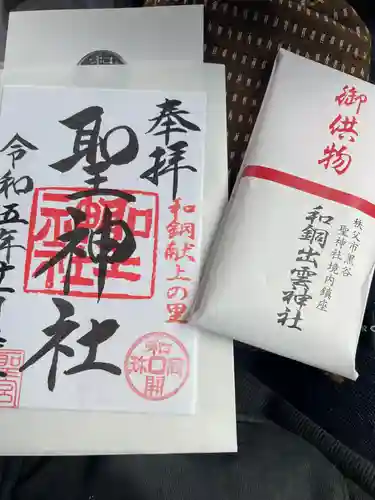 奉拝
聖神社
和銅献上の里
令和五年十一月
和同開珎
御供物
秩父市黒谷
聖神社境内鎮座
和銅出雲神社